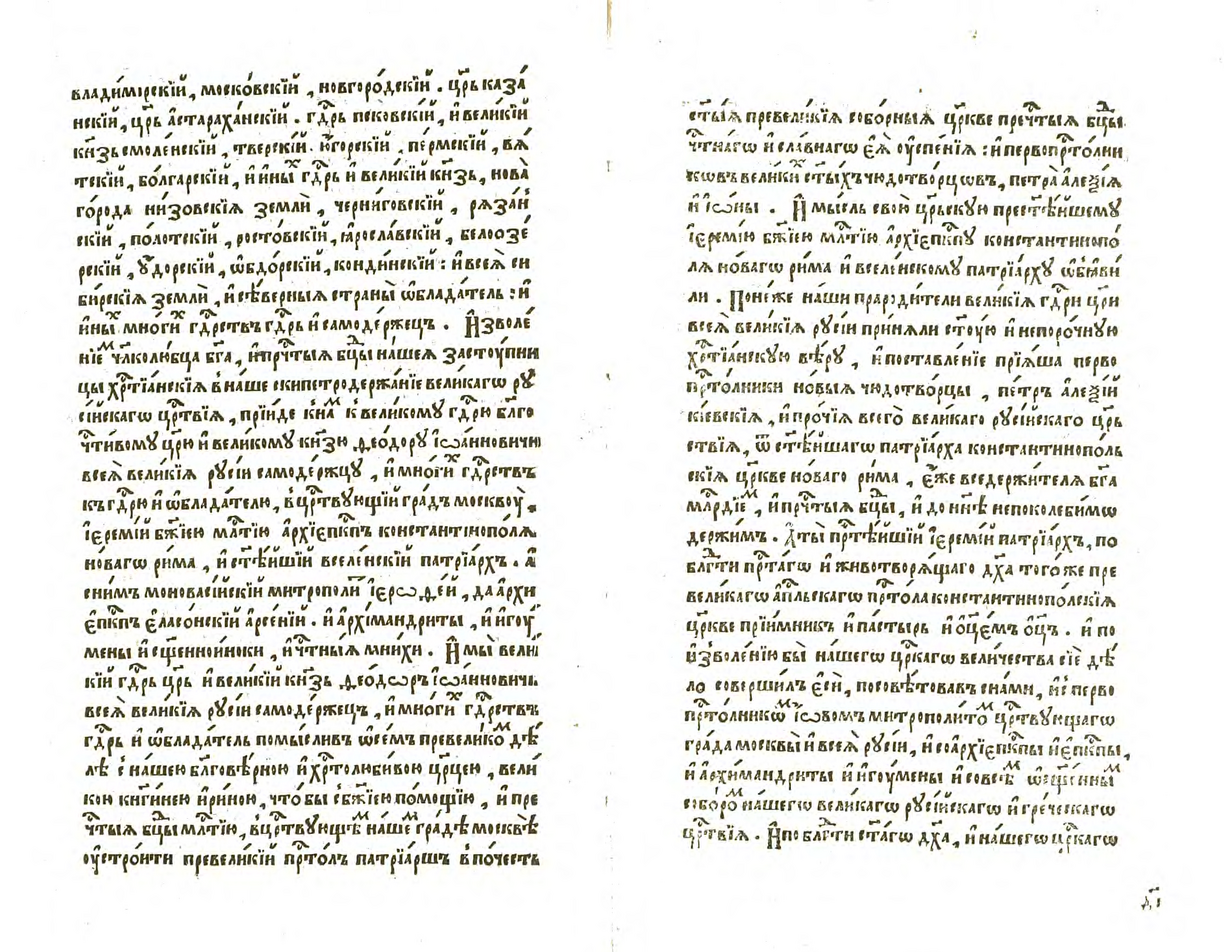 владимі́рскїй, моско́вскїй, новгоро́дскїй. цр҃ь каза́
нскїй, цр҃ь а҆страха́нскїй. гдⷭ҇рь пско́вскїй, и҆ вели́кїй
кн҃зь смоле́нскїй, тверскі́й и҆го́рскїй, пе́рмскїй, вѧ́
тскїй, бо́лгарскїй, и҆ и҆ны́ⷯ гдⷭ҇рь и҆ вели́кїй кн҃зь, нова̀
го́рода низо́вскїѧ землѝ, черни́говскїй, рѧза́н
скїй, по́лотскїй, росто́вскїй, ꙗ҆росла́вскїй, белоозе́
рскїй, ᲂу҆до́рскїй, ѡ҆бдо́рскїй, конди́нскїй: и҆ всеѧ̀ си
би́рскїѧ землѝ, и҆ сѣ́верныѧ страны̀ ѡ҆блада́тель: и҆
и҆ны́ⷯ мно́гиⷯ гдⷭ҇рствъ гдⷭ҇рь и҆ самоде́ржецъ. И҆зволе́
нїеⷨ чл҃колю́бца бг҃а, и҆ прⷱ҇тыѧ бцⷣы на́шеѧ засто́упни
цы хрⷭ҇тїа́нскїѧ в на́ше скипетродержа́нїе вели́кагѡ рꙋ
сі́йскагѡ црⷭ҇твїѧ, прїи́де к на́ⷨ к вели́комꙋ гдⷭ҇рю бл҃го
чⷭ҇ти́вомꙋ цр҃ю и҆ вели́комꙋ кн҃зю ѳео́дорꙋ і҆ѡа́нновичю
всеѧ̀ вели́кїѧ рꙋсі́и самоде́ржцꙋ, и҆ мно́гиⷯ гдⷭ҇рствъ
къ гдⷭ҇рю и҆ ѡ҆блада́телю, в црⷭ҇твꙋющїй гра́дъ москвоу̀.
і҆еремі́й бж҃їею млⷭ҇тїю а҆рхїепⷭ҇кпъ константинопо́лѧ
но́вагѡ ри́ма, и҆ ст҃ѣ́йшїй вселе́нскїй патрїа́рхъ. А҆
с ни́мъ моновасі́йскїй митрополи́ⷮ і҆ерѡѳе́й, да а҆рхи
є҆пⷭ҇кпъ є҆ласо́нскїй а҆рсе́нїй. и҆ а҆рхїмандри́ты, и҆ и҆гоу́
мены и҆ сщ҃енноино́ки, и҆ чⷭ҇тны́ѧ мни́хи. И҆ мы̀ вели
кїй гдⷭ҇рь цр҃ь и҆ вели́кїй кн҃зь ѳео́дѡръ і҆ѡа́нновичь
всеѧ̀ вели́кїѧ рꙋсі́и самоде́ржецъ, и҆ мно́гиⷯ гдⷭ҇рствъ
гдⷭ҇рь и҆ ѡ҆блада́тель помы́сливъ ѡ҆ се́мъ превели́коⷨ дѣ́
лѣ с на́шею бл҃говѣ́рною и҆ хрⷭ҇толюби́вою цр҃цею, вели
кою кн҃ги́нею и҆ри́ною, что́ бы с бж҃їею по́мощїю, и҆ пре
чⷭ҇тыѧ бцⷣы млⷭ҇тїю, в црⷭ҇твꙋющеⷨ на́шеⷨ гра́дѣ москвѣ̀
оу҆стро́ити превели́кїй прⷭ҇то́лъ патрїа́ршъ в по́честь
ст҃ы́ѧ превели́кїѧ собо́рныѧ цр҃кве пречⷭ҇тыѧ бцⷣы
чⷭ҇тна́гѡ и҆ сла́внагѡ є҆ѧ̀ оу҆спе́нїѧ: и҆ первопрⷭ҇то́лни
кѡвъ вели́киⷯ ст҃ы́хъ чюдотво́рцѡвъ, петра̀ а҆леѯі́ѧ
и҆ і҆ѡ́ны. И҆ мы́сль свою̀ цр҃ьскꙋю прест҃ѣ́йшемꙋ
і҆еремі́ю бж҃їею млⷭ҇тїю а҆рхїепⷭ҇кпꙋ константинопо́
лѧ но́вагѡ ри́ма и҆ вселе́нскомꙋ патрїа́рхꙋ ѡ҆бѧви́
ли. Поне́же на́ши прароди́тели вели́кїѧ гдⷭ҇ри цр҃и
всеѧ̀ вели́кїѧ рꙋсі́и прїѧли ст҃о́ую и҆ непоро́чнꙋю
хрⷭ҇тїа́нскꙋю вѣ́рꙋ, и҆ поставле́нїе прїѧ́ша перво
прⷭ҇то́лники но́выѧ чюдотво́рцы, пе́тръ а҆леѯі́й
кі́евскїѧ, и҆ про́чїѧ всего̀ вели́каго рꙋсі́йскаго цр҃ь
ствїѧ, ѿ ст҃ѣ́йшагѡ патрїа́рха константинопо́ль
скїѧ цр҃кве но́ваго ри́ма, є҆́же вседержи́телѧ бг҃а
млⷭ҇рдїеⷨ, и҆ прⷱ҇тыѧ бцⷣы, и҆ до нн҃ѣ непоколеби́мѡ
держи́мъ. А҆ ты̀ прⷭ҇тѣ́йшїй і҆еремі́й патрїа́рхъ, по
блгⷣти прⷭ҇та́гѡ и҆ животворѧ́щаго дх҃а того́же пре
вели́кагѡ а҆пⷭ҇льскагѡ прⷭ҇то́ла константинопо́лскїѧ
цр҃кве прїи́мникъ и҆ па́стырь и҆ о҆ц҃є́мъ о҆ц҃ъ. и҆ по
и҆зволе́нїю бы̀ на́шегѡ црⷭ҇кагѡ вели́чества сїѐ дѣ́
ло соверши́лъ є҆сѝ, посовѣ́товавъ с на́ми, и҆ с перво
прⷭ҇то́лникѡⷨ і҆ѡ́вомъ митрополи́тоⷨ црⷭ҇твꙋющагѡ
гра́да москвы̀ и҆ всеѧ̀ рꙋсі́и, и҆ со а҆рхїепⷭ҇кпы и҆ є҆пⷭ҇кпы,
и҆ а҆рхимандри́ты и҆ и҆гоу́мены и҆ со всѣ́ⷨ ѡ҆сщ҃е́нныⷨ
собо́роⷨ на́шегѡ вели́кагѡ рꙋсі́йскагѡ и҆ гре́ческагѡ
црⷭ҇твїѧ. И҆ по блгⷣти ст҃а́гѡ дх҃а, и҆ на́шегѡ црⷭ҇кагѡ